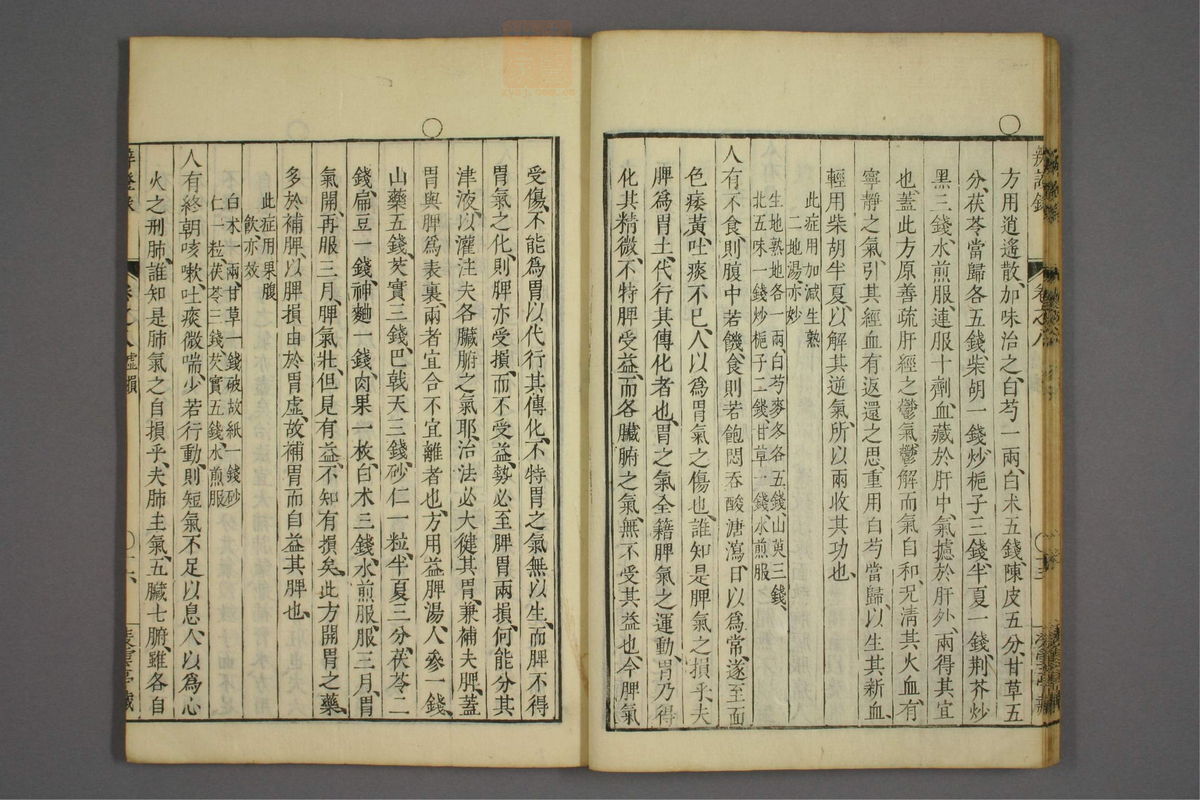 辨證錄
卷之八
方用逍遙散加味治之白芍一兩白术五錢陳皮五分甘草五
分茯苓當歸各五錢柴胡一錢炒梔子三錢半夏一錢荆芥炒
黑三錢水煎服連服十劑血藏於肝中氣攄於肝外兩得其宜
也蓋此方原善疏肝經之鬱氣鬱解而氣自和况清其火血有
寧靜之氣引其經血有返還之思重用白芍當歸以生其新血
輕用柴胡半夏以解其逆氣所以兩收其功也
此症用加减生熟
二地湯亦妙
生地熟地各一兩白芍麥冬各五錢山萸三錢
北五味一錢炒梔子二錢甘草一錢水煎服
人有不食則腹中若饑食則若飽悶吞酸溏瀉日以爲常遂至面
色痿黃吐痰不已人以爲胃氣之傷也誰知是脾氣之損乎夫
脾爲胃土代行其傳化者也胃之氣全藉脾氣之運動胃乃得
化其精微不特脾受益而各臟腑之氣無不受其益也今脾氣
受傷不能爲胃以代行其傳化不特胃之氣無以生而脾不得
胃氣之化則脾亦受損而不受益勢必至脾胃兩損何能分其
津液以灌注夫各臟腑之氣耶治法必大健其胃兼補夫脾蓋
胃與脾爲表裏兩者宜合不宜離者也方用益脾湯人參一錢
山藥五錢芡實三錢巴戟天三錢砂仁一粒半夏三分茯苓二
錢扁豆一錢神麯一錢肉果一枚白术三錢水煎服服三月胃
氣開再服三月脾氣壯但見有益不知有損矣此方開胃之藥
多於補脾以脾損由於胃虛故補胃而自益其脾也
此症用果腹
飲亦效
白术一兩甘草一錢破故紙一錢砂
仁一粒茯苓三錢芡實五錢水煎服
人有終朝咳嗽吐痰微喘少若行動則短氣不足以息人以爲心
火之刑肺誰知是肺氣之自損乎夫肺主氣五臟七腑雖各自
卷之八
虛損